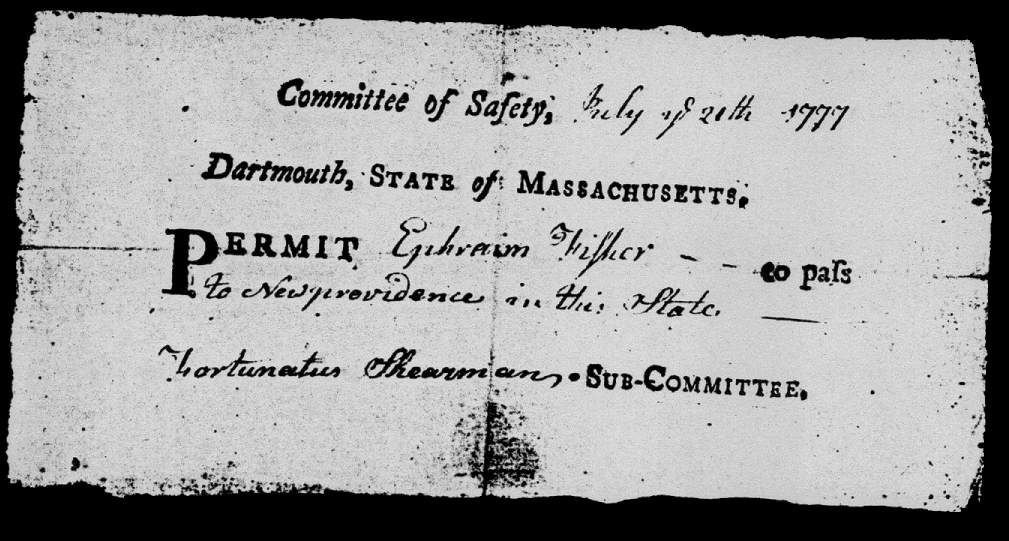 Committee of Safety, July ye 21th 1777
Dartmouth, STATE of MASSACHUSETTS.
PERMIT Ephraim Fisher – – to paſs
to Newprovidence in this State. —
Fortunatus Shearman, SUB-COMMITTEE.